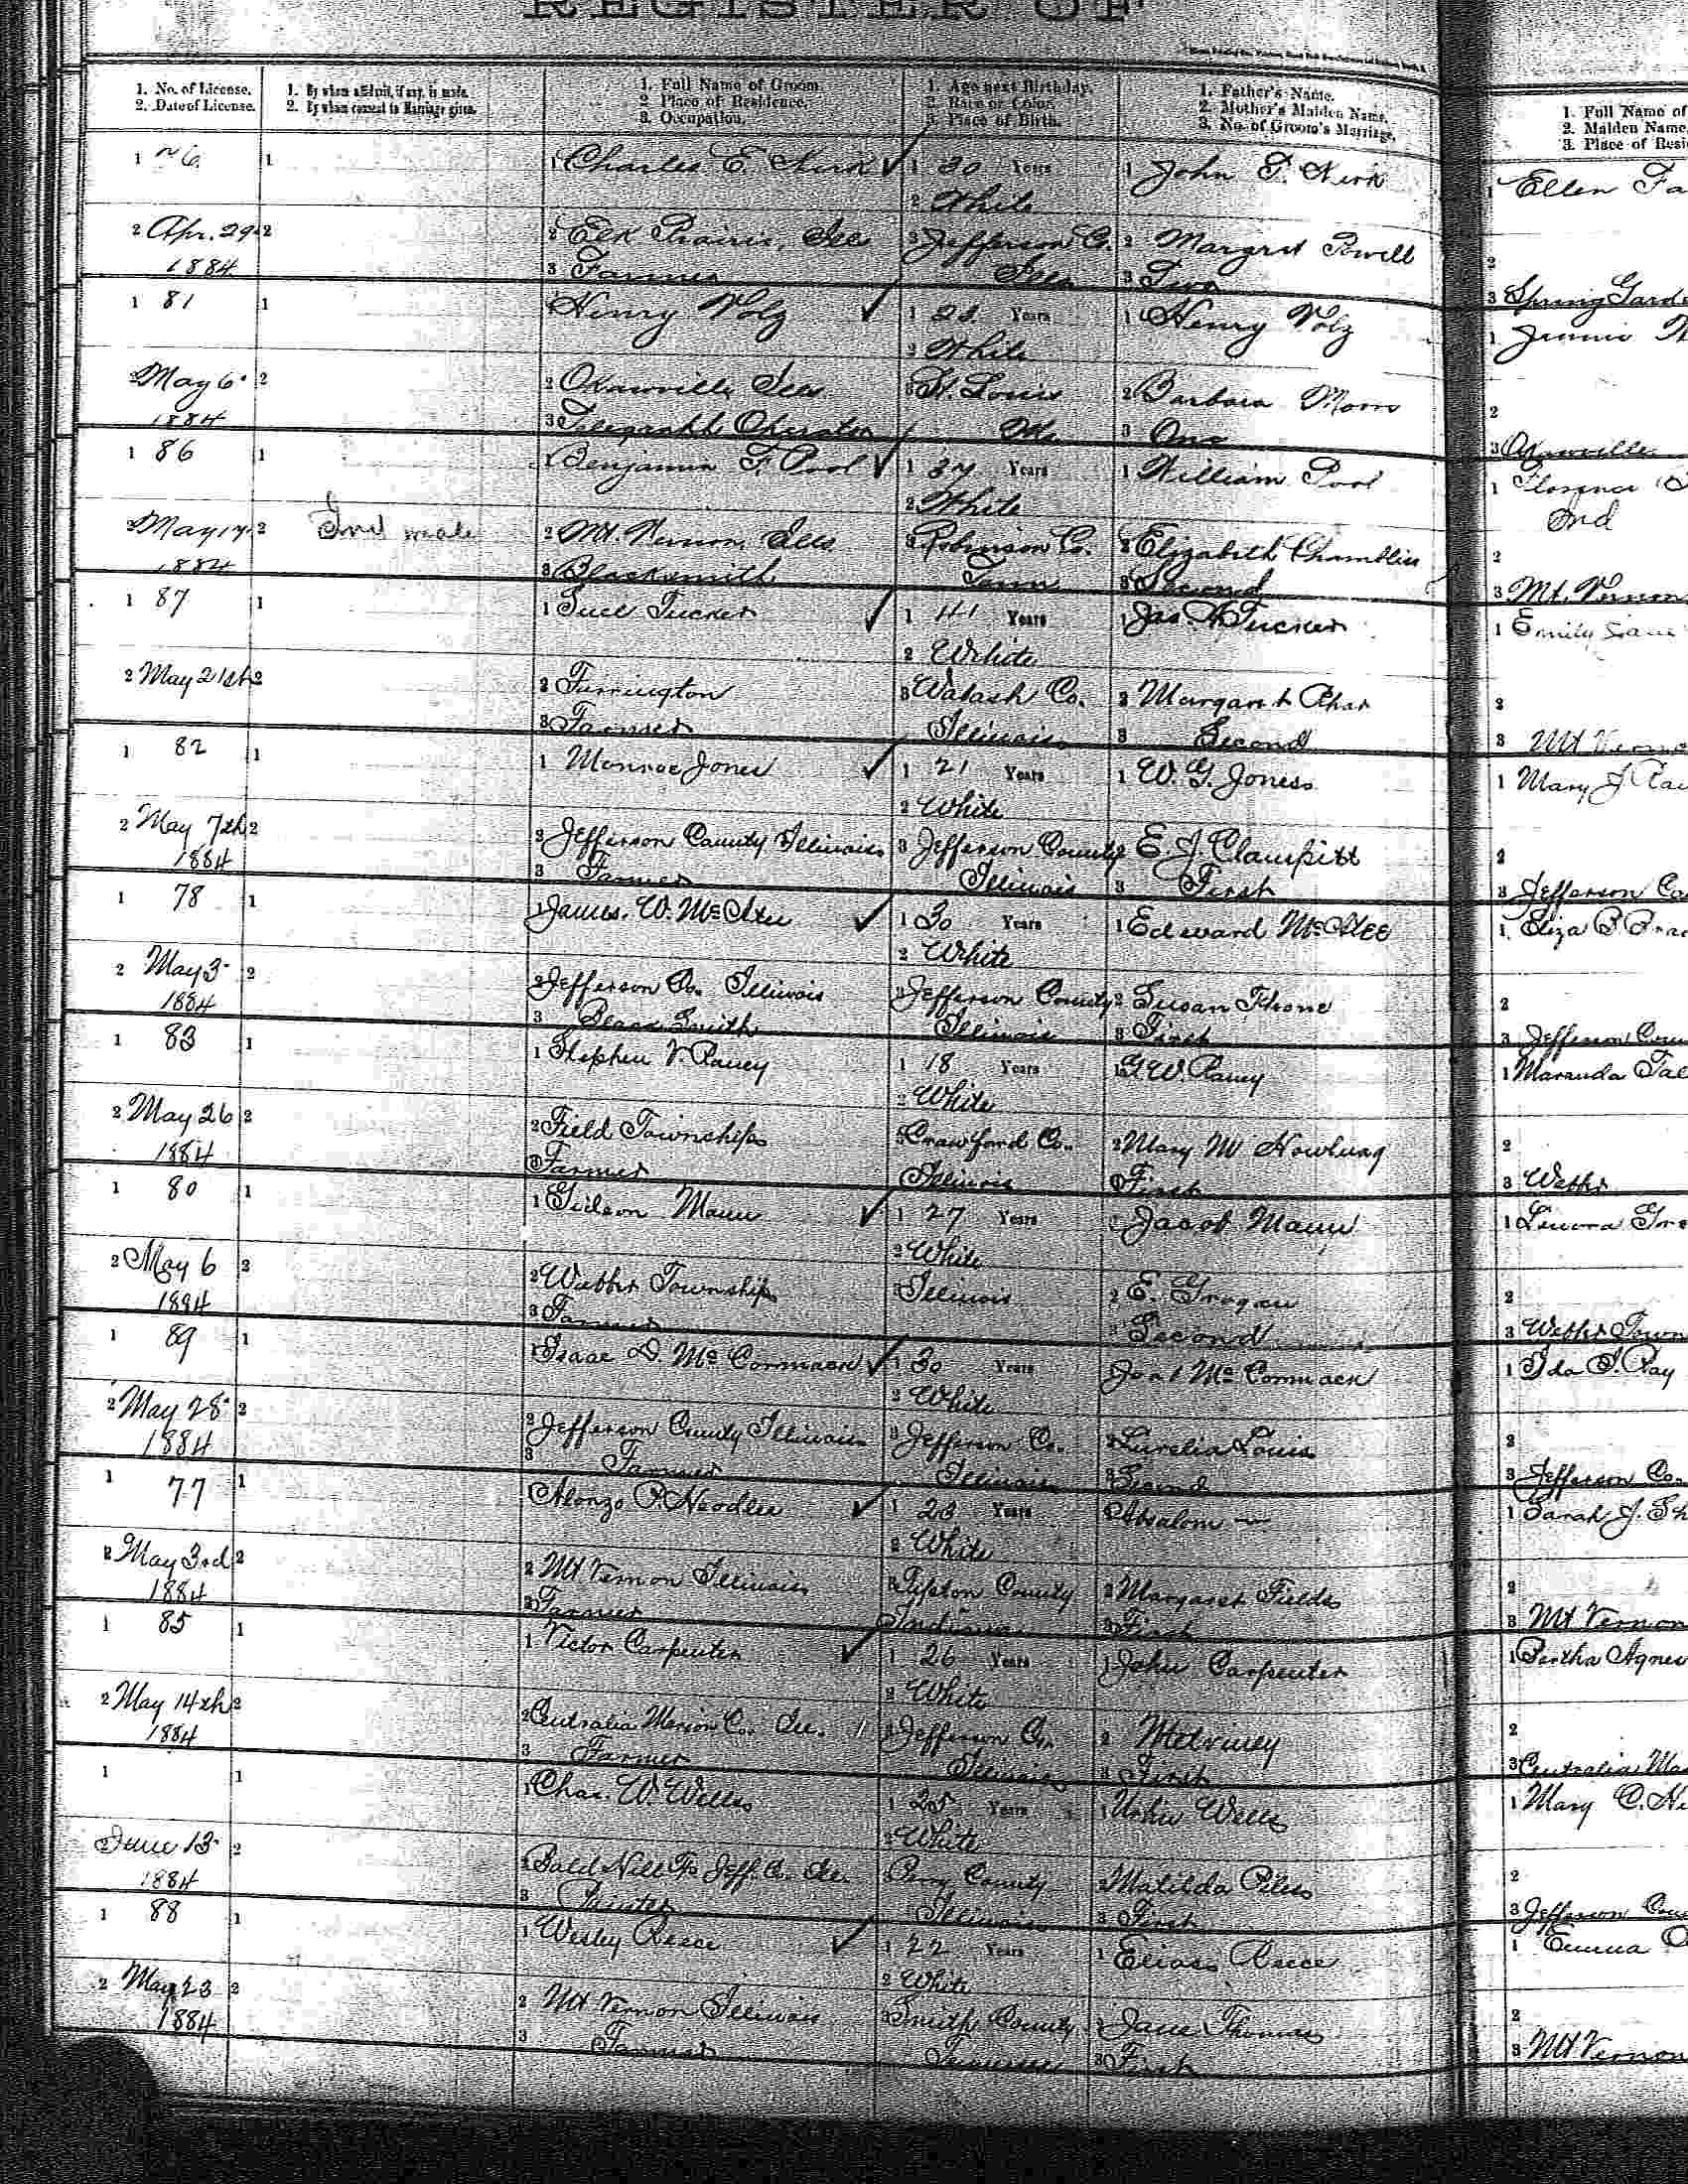 REGISTER OF
1. No. of License.
2. Date of License.
1. By whom affidavit, if any, is made.
2. By whom consent to Marriage given.
1. Full Name of Groom.
2. Place of Residence.
3. Occupation.
1. Age next Birthday.
2. Race or Color.
3. Place of Birth.
1. Father's Name.
2. Mother's Maiden Name.
3. No. of Groom's Marriage.
1. Full Name of
2. Maiden Name
3. Place of Resi
1 76 1 1 Charles E. Kirk ✓ 1 30 Years 1 John T. Kirk 1 Ellen Fa
2 White
2 Apr. 29 2 2 Elk Prairie, Ills 3 Jefferson Co. 2 Margret Powell 2
1884 3 Farmer Ills 3 Two 3 Spring Garde
1 81 1 Henry Volz ✓ 1 23 Years 1 Henry Volz 1 Jennie
2 White
2 May 6 2 2 Okawville Ills 3 St. Louis 2 Barbara 2
1884 3 Telegraph Operator Mo 3 One 3 Okawville
1 86 1 1 Benjamin F. Pool ✓ 1 37 Years 1 William Pool 1 Florence
2 White 2nd
2 May 17 2 2nd male 2 Mt. Vernon, Ills 3 Robinson Co. 2 Elizabeth Chamblin 2
1884 3 Blacksmith Tenn 3 Second 3 Mt. Vernon
1 87 1 1 Tucker ✓ 1 41 Years 1 Jas Tucker 1 Emily Jane
2 White
2 May 21st 2 2 Farrington 3 Wabash Co. 2 Margaret 2
3 Farmer Illinois 3 Second 3 Mt Verno
1 82 1 1 Monroe Jones ✓ 1 21 Years 1 W. G. Jones 1 Mary J
2 White
2 May 7th 2 2 Jefferson County Illinois 3 Jefferson County 2 E J Claupitt 2
1884 3 Farmer Illinois 3 First 3 Jefferson Co
1 78 1 1 James. W. McAtee ✓ 1 30 Years 1 Edward McAtee 1 Eliza B
2 White
2 May 3 2 2 Jefferson Co. Illinois 3 Jefferson County 2 Susan 2
1884 3 Black Smith Illinois 3 First 3 Jefferson Coun
1 83 1 1 Stephen V. Raney 1 18 Years 1 G. W. Raney 1 Maranda
2 White
2 May 26 2 2 Field Township 3 Crawford Co. 2 Mary M 2
1884 3 Farmer Illinois 3 First 3 Webber
1 80 1 1 Gideon Mann ✓ 1 27 Years 1 Jacob Mann 1 Lenora
2 White
2 May 6 2 2 Webber Township 3 Illinois 2 E. Grogan 2
1884 3 Farmer 3 Second 3 Webber Town
1 89 1 1 Isaac D. McCormack ✓ 1 30 Years Joel McCormack 1 Ida S. Ray
2 White
2 May 28 2 2 Jefferson County Illinois 3 Jefferson Co. 2 Lurelia Louis 2
1884 3 Farmer Illinois 3 Second 3 Jefferson Co.
1 77 1 1 Alonzo P. Needler ✓ 1 23 Years 1 Absalom 1 Sarah J. Sh
2 White
2 May 3rd 2 2 Mt Vernon Illinois 3 Tipton County 2 Margaret Fields 2
1884 3 Farmer Indiana 3 First 3 Mt Vernon
1 85 1 1 Victor Carpenter ✓ 1 26 Years 1 John Carpenter 1 Bertha Agnes
2 White
2 May 14th 2 2 Centralia Marion Co. Ill. 3 Jefferson Co. 2 Melviney 2
1884 3 Farmer Illinois 3 First 3 Centralia Ma
1 1 1 Chas. W. Wells 1 25 Years 1 Wells 1 Mary C.
2 White
June 13 2 2 Bald Hill Tp Jeff. Co. Ill. Perry County 2 Matilda Piles 2
1884 3 Painter Illinois 3 First 3 Jefferson Cou
1 88 1 1 Wesley Reece ✓ 1 22 Years 1 Elias Reece 1 Emma
2 White
2 May 23 2 2 Mt Vernon Illinois 3 Smith County 2 Jane Thomas 2
1884 3 Farmer Tennessee 3 First 3 Mt Vernon